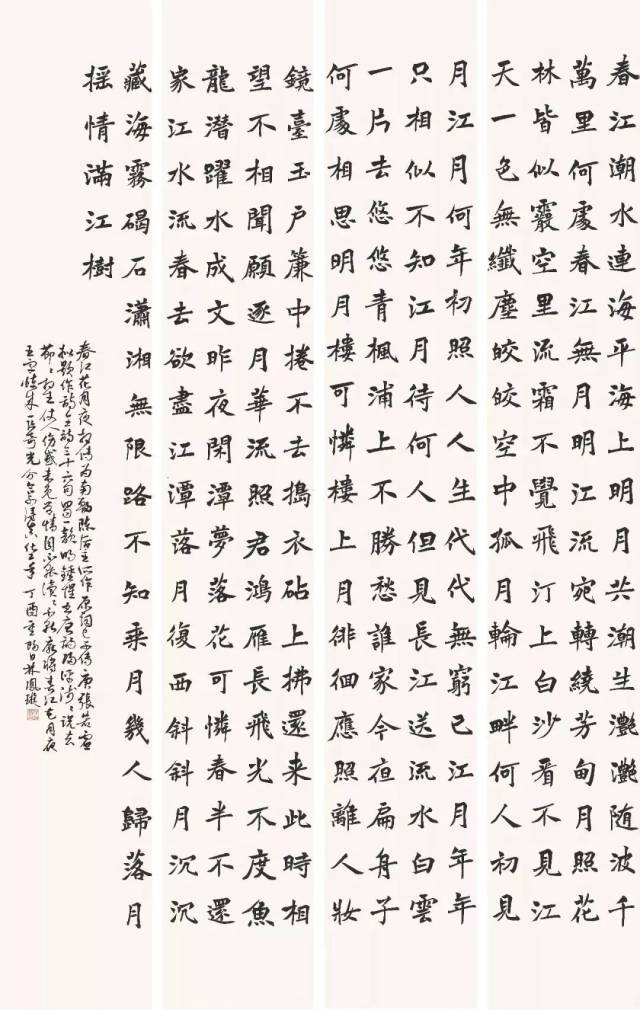 春江潮水連海平海上明月共潮生灩灩随波千
萬里何處春江無月明江流宛轉繞芳甸月照花
林皆似霰空里流霜不覺飛汀上白沙看不見江
天一色無纖塵皎皎空中孤月輪江畔何人初見
月江月何年初照人人生代代無窮已江月年年
只相似不知江月待何人但見長江送流水白雲
一片去悠悠青楓浦上不勝愁誰家今夜扁舟子
何處相思明月樓可憐樓上月徘徊應照離人妝
鏡臺玉戶簾中捲不去搗衣砧上拂還来此時相
望不相聞願逐月華流照君鴻雁長飛光不度魚
龍潛躍水成文昨夜閑潭夢落花可憐春半不還
家江水流春去欲盡江潭落月復西斜斜月沉沉
藏海霧碣石瀟湘無限路不知乘月幾人歸落月
摇情滿江樹
春江花月夜相傳為南朝陳后主所作原詞已不傳唐張若虛
拟題作詩三十六句
春江花月夜
丁酉重陽日林鳳